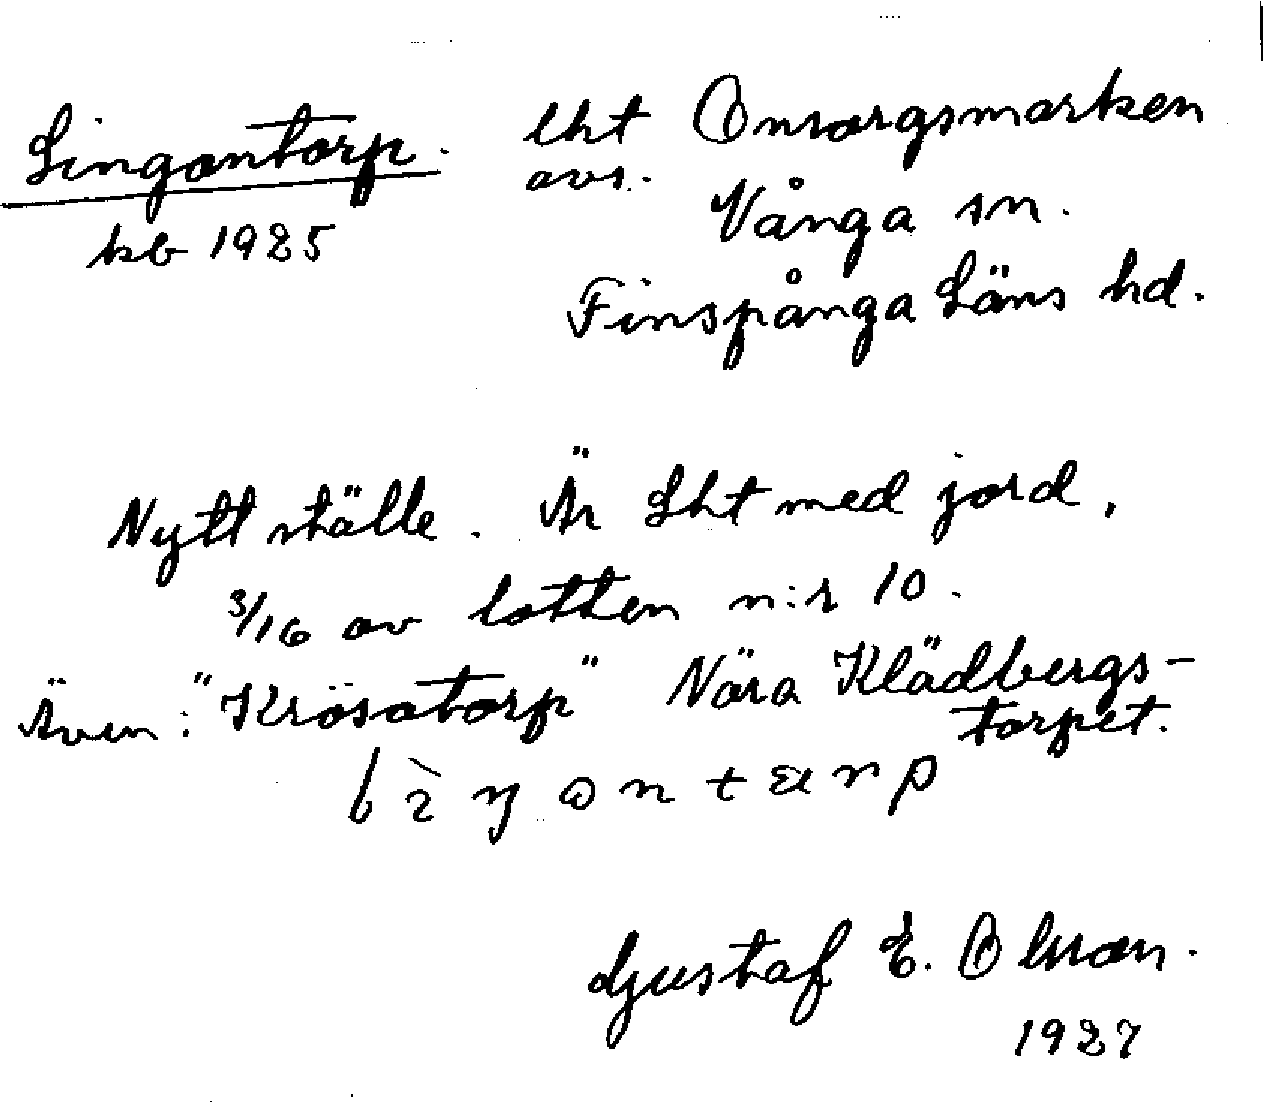 Lingontorp. lht Onsorgsmarken
avs. Vånga sn.
kb 1925
Finspånga Läns hd.
Nytt ställe. Är Lht med jord,
3/16 av lotten n:r 10.
Även: "Krösatorp" Nära Klädbergs-
torpet.
Gustaf E. Olsson.
1927